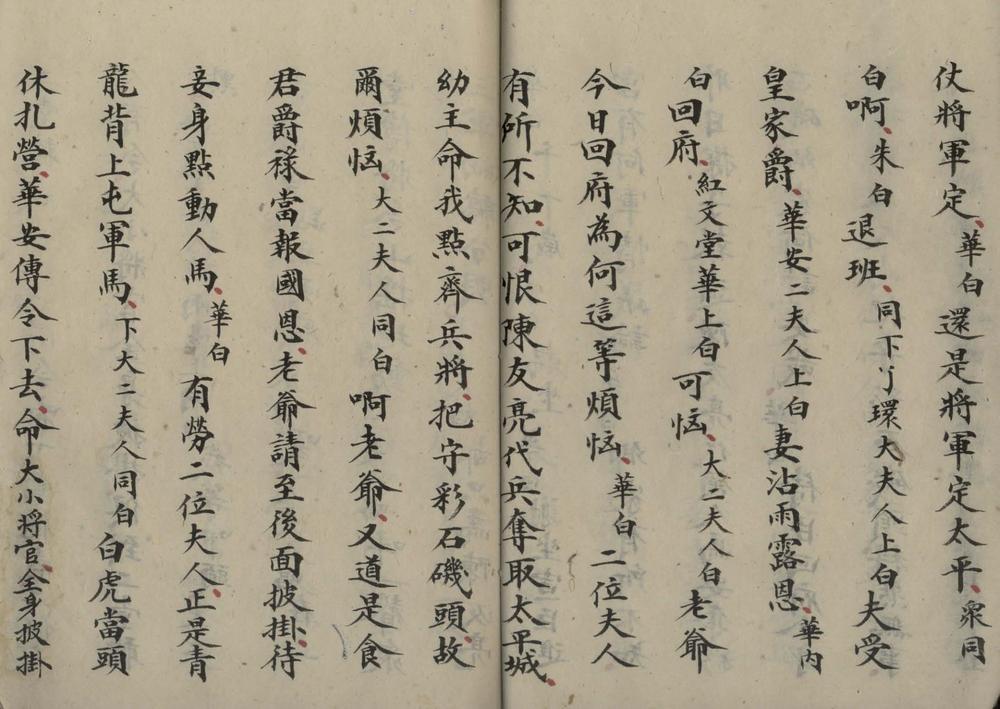 仗將軍定、華白還是將軍定太平、衆同
白啊、朱白退班、同下丫環大夫人上白夫受
皇家爵、華安二夫人上白妻沾雨露恩、華内
白回府、紅文堂華上白可恼、大二夫人白老爺
今日回府為何這等煩恼、華白二位夫人
有所不知、可恨陳友亮代兵奪取太平城、
幼主命我點齊兵將、把守彩石磯頭、故
爾煩恼、大二夫人同白啊老爺、又道是食
君爵祿當報國恩、老爺請至後面披掛、待
妾身點動人馬、華白有勞二位夫人、正是青
龍背上屯軍馬、下大二夫人同白白虎當頭
休扎營、華安傳令下去、命大小將官、全身披掛